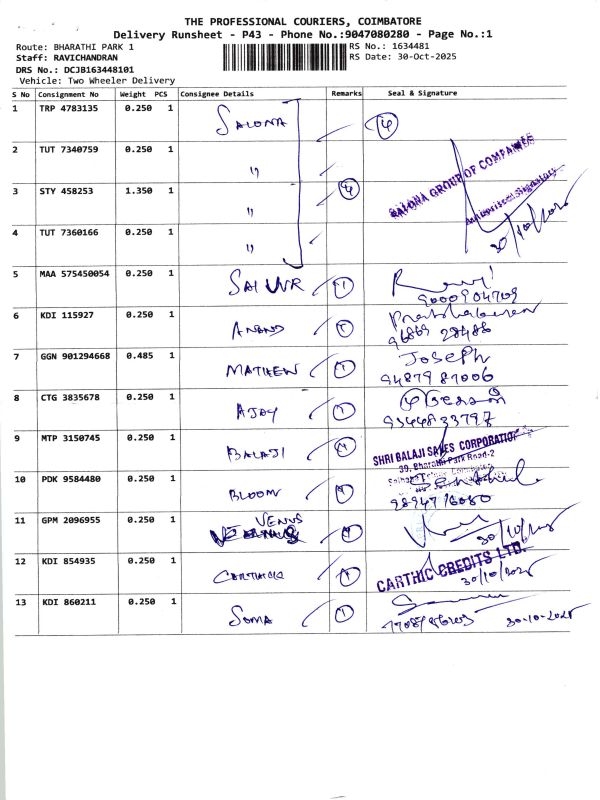 THE PROFESSIONAL COURIERS, COIMBATORE
Delivery Runsheet - P43 - Phone No.:9047080280 - Page No.:1
Route: BHARATHI PARK 1
Staff: RAVICHANDRAN
DRS No.: DCJB163448101
Vehicle: Two Wheeler Delivery
RS No.: 1634481
RS Date: 30-Oct-2025
S No Consignment No Weight PCS Consignee Details Remarks Seal & Signature
1 TRP 4783135 0.250 1 SALONA 4
2 TUT 7340759 0.250 1 "
SALONA GROUP OF COMPANIES
Authorised Signatory
30/10/2025
3 STY 458253 1.350 1 " 4
4 TUT 7360166 0.250 1 "
5 MAA 575450054 0.250 1 SAI 1
9000904709
6 KDI 115927 0.250 1 ANAND 1 Prabhakaran
96869 28486
7 GGN 901294668 0.485 1 MATHEW 1 Joseph
94879 87006
8 CTG 3835678 0.250 1 AJAY 1
9344833797
9 MTP 3150745 0.250 1 BALAJI 1
SHRI BALAJI SALES CORPORATION
39, Bharathi Park Road-2
10 PDK 9584480 0.250 1 BLOOM 1 Senthil
9894776080
11 GPM 2096955 0.250 1 VENUS 1
30/10/2025
12 KDI 854935 0.250 1 CARTHIC 1
CARTHIC CREDITS LTD.
30/10/2025
13 KDI 860211 0.250 1 SOMA 1
30-10-2025